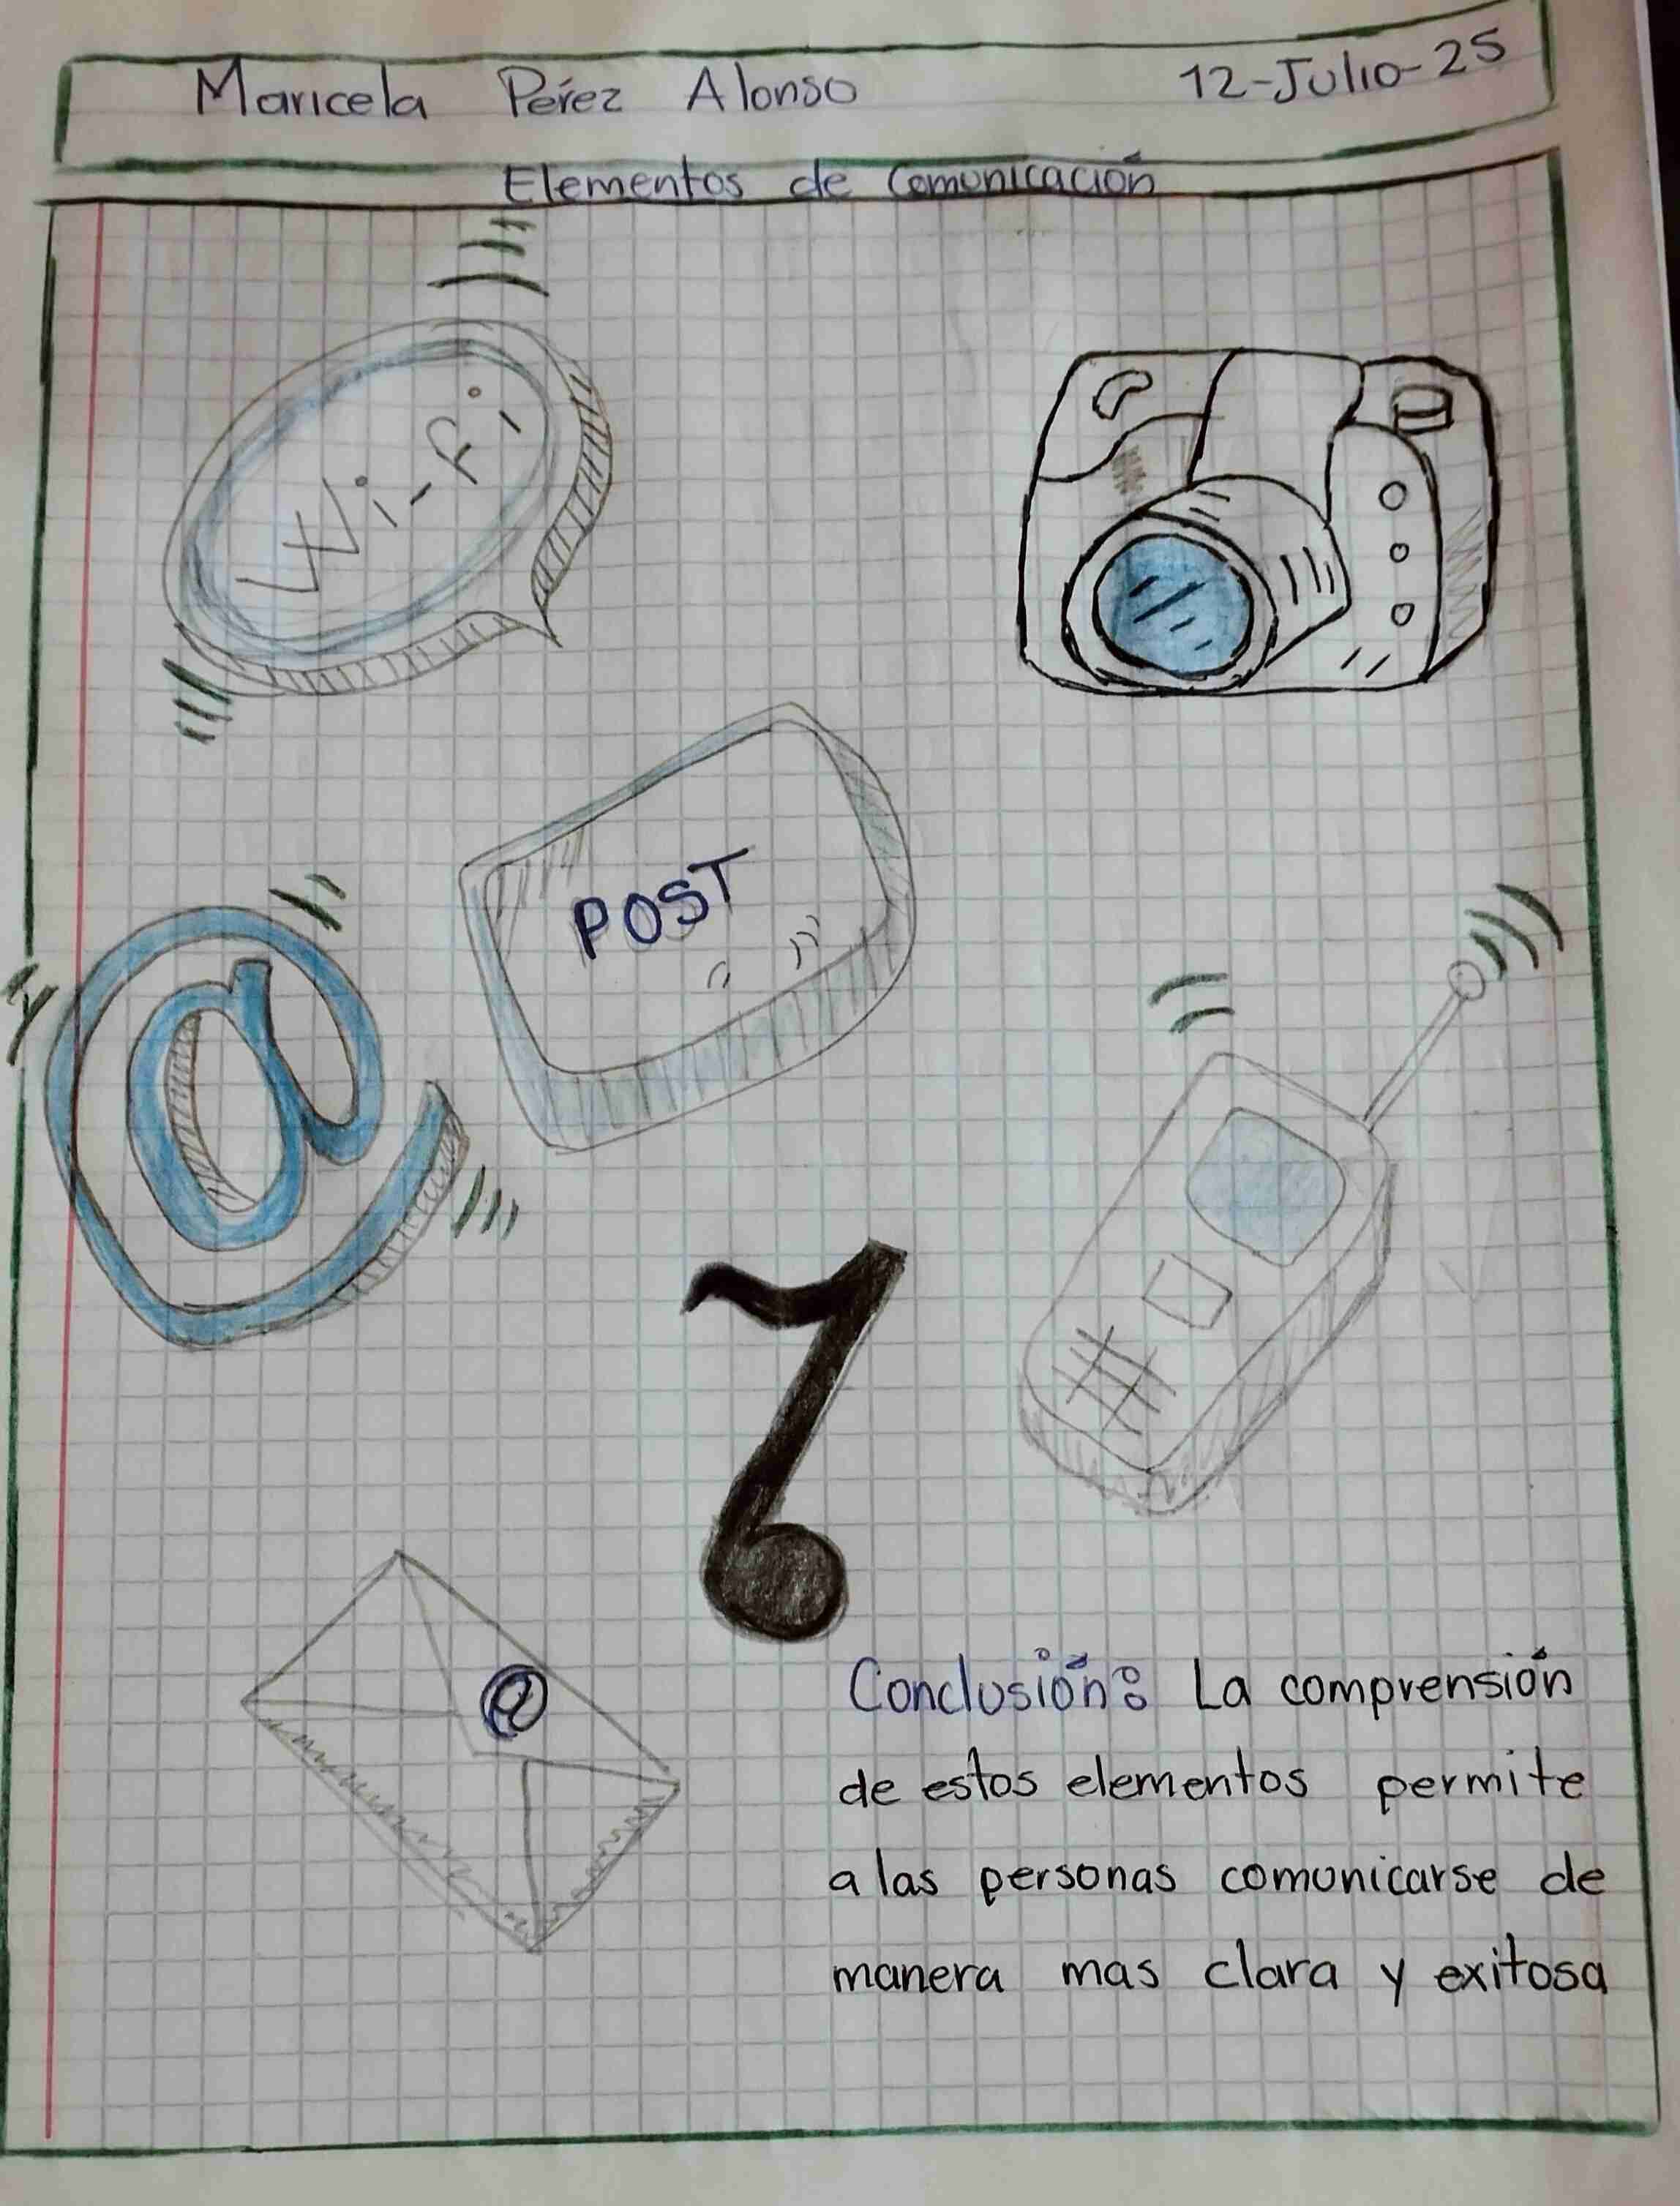 Maricela Pérez Alonso 12-Julio-25
Elementos de Comunicación
Wi-Fi
POST
@
@
Conclusión: La comprensión
de estos elementos permite
a las personas comunicarse de
manera mas clara y exitosa